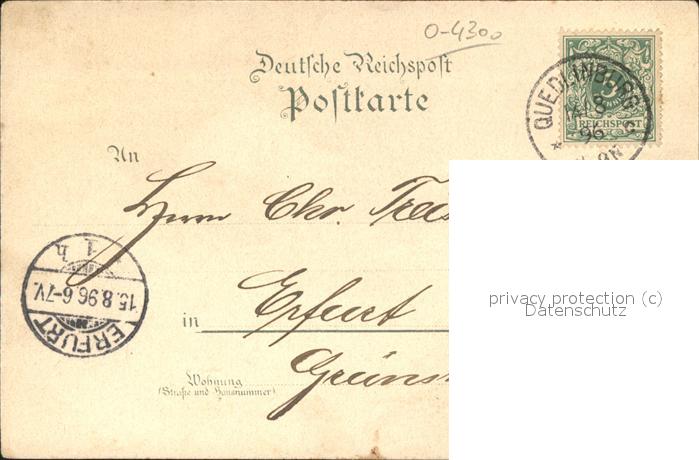 O-4300
Deutsche Reichspost
Postkarte
QUEDLINBURG
8
96
REICHSPOST
An
Herrn Chr. Treis
ERFURT
15.8.96. 6-7V.
1 h
in Erfurt
Wohnung
(Straße und Hausnummer)
Grüns
privacy protection (c)
Datenschutz